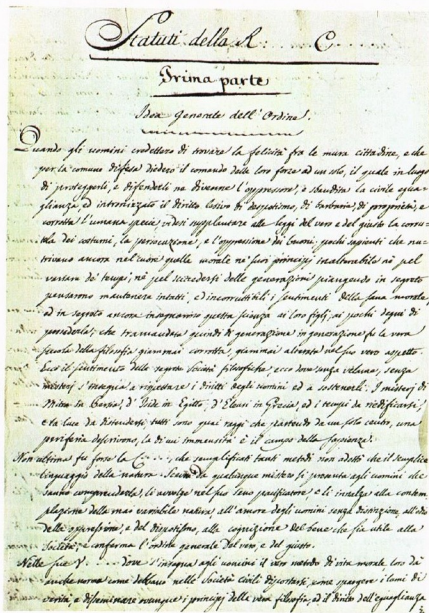 Statuti della R: C
Prima parte
Idea Generale dell'Ordine.
Quando gli uomini credettero di trovare la felicità fra le mura cittadine, e che
per la comune difesa diedero il comando delle loro forze ad un solo, il quale in luogo
di proteggerli, e difenderli ne divenne l'oppressore, e sbandita la civile egua-
glianza ed intronizzato il diritto di despotismo, di barbarie, di proprietà, e
corrotta l'umana specie, videsi soppiantare alle leggi del vero e del giusto la corrut-
tela dei costumi, la persecuzione, e l'oppressione dei buoni; pochi sapienti che nu-
trivano ancora nel cuore quella morale ne' suoi principj inalterabile nè pel
variare de' tempi, nè pel succedersi delle generazioni piangendo in segreto
pensarono mantenere intatti, ed incorruttibili i sentimenti della sana morale,
ed in segreto ancora insegnarono questa scienza ai loro figli, ai pochi degni di
possederla; che tramandata quindi di generazione in generazione fu la vera
scuola della filosofia giammai corrotta, giammai alterata nel suo vero aspetto.
Ecco il sentimento delle segrete Società filosofiche, ecco dove senza velame, senza
misteri s'insegna a rispettare i diritti degli uomini ed a sostenerli. I misterj di
Mitra in Persia, d'Iside in Egitto, d'Eleusi in Grecia, ed i tempj da riedificarsi,
e la luce da distendersi tutti sono quai raggi che partendo da un solo centro, una
periferia descrivono, la di cui immensità è il campo della sapienza.
Non ultima fu forse la C che semplificati tanti metodi non adottò che il semplice
linguaggio della natura. Scevra di qualunque mistero si presenta agli uomini che
sanno comprenderla, li avvolge nel suo seno pacificatore e li innalza alla contem-
plazione della mai variabile natura all'amore degli uomini senza distinzione, all'odio
della oppressione, e del dispotismo, alla cognizione del bene che sia utile alla
Società, e conferma l'ordine generale del vero, e del giusto.
Nelle sue V. dove s'insegna agli uomini il vero metodo di vita morale, loro dà
anche norma come debbano nelle Società civili diportarsi, come spargere i lumi di
verità, e disseminare ovunque i principj della vera filosofia, ed il diritto dell'eguaglianza